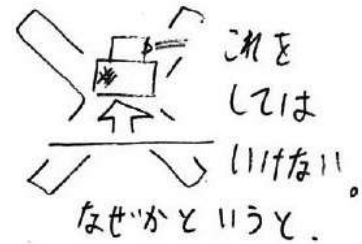 これを
しては
いけない。
なぜかというと、